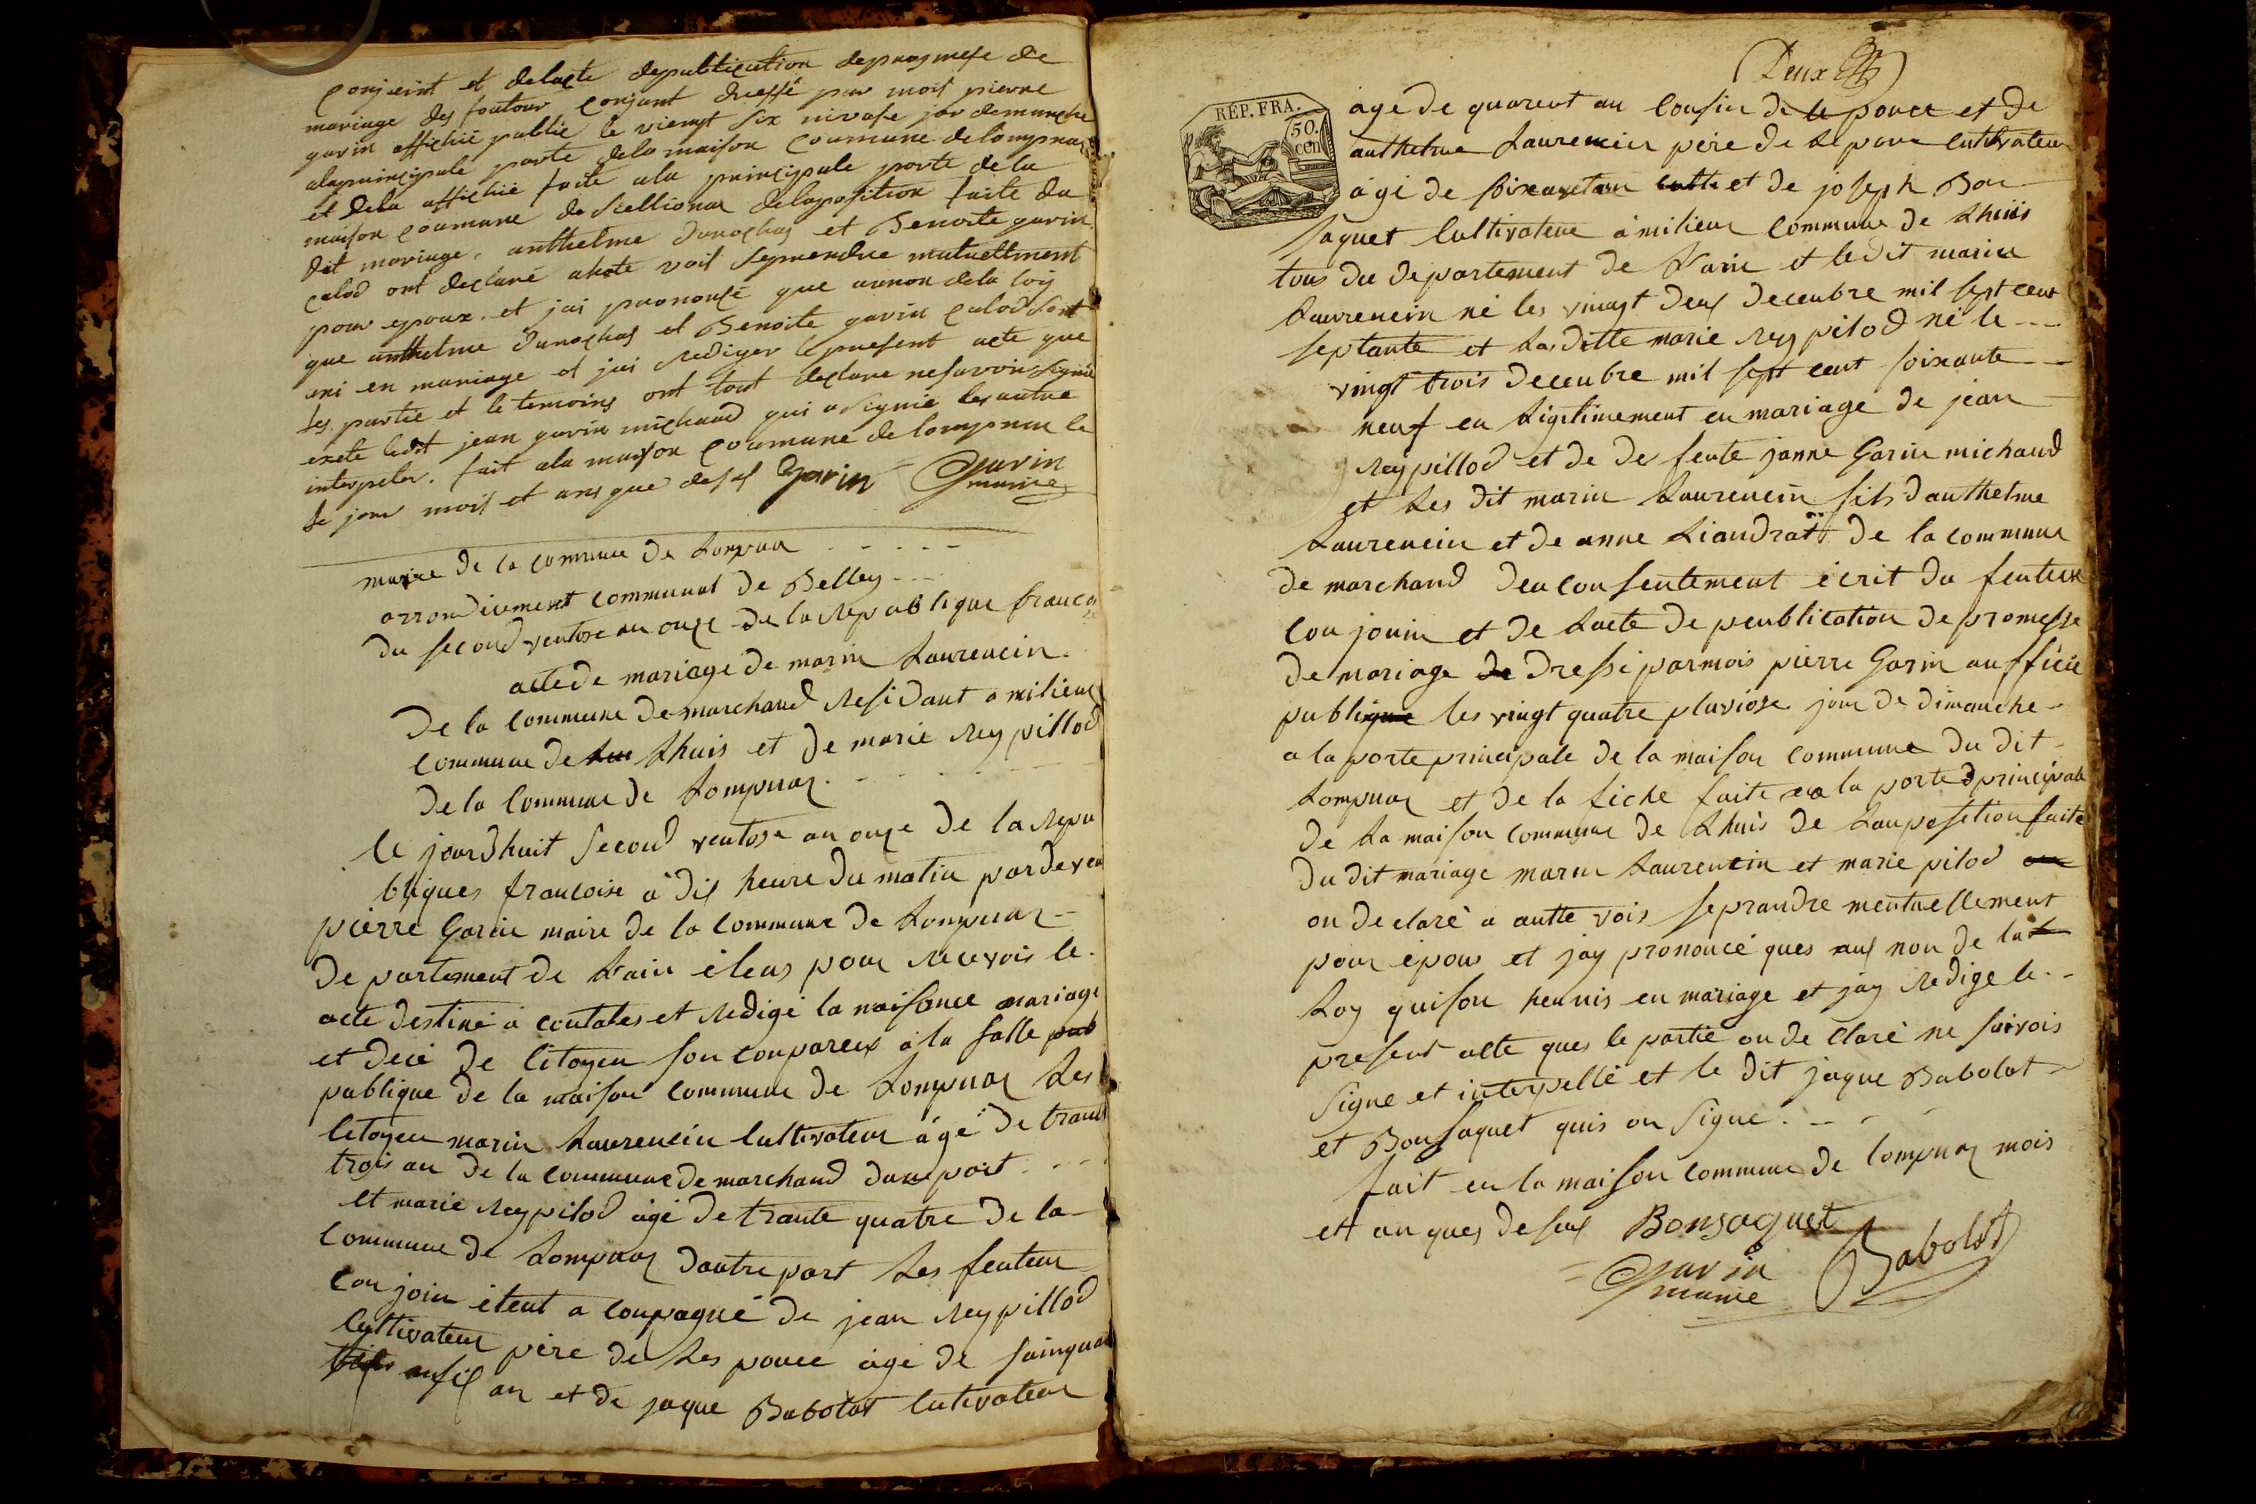 conjoint et delacte depublication depraomese de
mariage des fouteur conjant dressé par mois pierre
garin affichié publié le viengt six nivose jor demanche
alaprincipale porte dela maison coumune delompnas
et dela affichié faite ala principale porte de la
maison coumune de Seillionas delaposition faite du
dit mariage, anthelme dunochas et Benoite garin
calod ont declaré ahote vois seprendre mutuellment
pour epoux. et jai praononsé que aunon dela loy
que anthelme dunochas et Benoite garin calod sont
uni en mariage et jai rediger le present acte que
les partie et le temoins ont tout declare nesavoir signié
exete ledit jean garin michaud qui a signié les autre
interpeler. fait ala maison coumune de lompnas le
le jour mois et ans que desus Garin Garin
maire
maire de la commune de Lompnas
arrondicement communal de Belley
du second ventose an onze de la republique franca
acte de mariage de marin Laurencin
de la commune de marchand residant a milieux
commune de Lhuis et de marie reypillod
de la commune de Lompnas
le jourdhuit second ventose an onze de la repu
bliques francoise à dix heure du matin pardeven
pierre Garin maire de la commune de Lompnas
departement de Lain éleus pour recevois le
acte destiné à contates et redigé la naisance mariage
et decé de citoyen son conpareux à la salle pub
publique de la maison commune de Lompnas Les
citoyen marin Laurencin cultivateur agé de trant
trois an de la commune de marchand dune part
et marie reypilod agé de trante quatre de la
commune de Lompnas dautre part Les feuteur
conjoin étent a coupagné de jean reypillod
cultivateur père de Les pouce agé de sainquan
ausil an et de jaque Babolat cultivateur
Deux
RÉP. FRA.
50.
cen
agé de quarent an cousin de le pouce et de
anthelme Laurencin père de Lepoux cultivateur
agé de soixantan et de joseph Bon
saquet cultivateur à milieux commune de Lhuis
tous du departement de Lain et ledit marin
Laurencin né les vingt deux decenbre mil sept cent
septante et Laditte marie reypilod né le
vingt trois decenbre mil sept cent soixante
neuf en ligitimement en mariage de jean
reypillod et de defente janne Garin michaud
et Les dit marin Laurencin fils danthelme
Laurencin et de anne Liandrat de la commune
de marchand den consentement écrit du feuteur
conjouin et de Lacte de peublication de promesse
de mariage de dressé parmois pierre Garin auffiéié
publique les vingt quatre pluviose jour de dimanche
a la porte principale de la maison commune du dit
Lompnas et de la fiche faite a la porte principale
de La maison commune de Lhuis de Lauposetion faite
du dit mariage marin Laurencin et marie pilod
on declaré a autte vois seprandre mentuellement
pour épous et jay prononcé ques aux non de la
Loy quison heunis en mariage et jay redige le
present acte ques le partié on declaré ne saivois
signe et interpellé et le dit jaque Babolat
et Bonsaquet quis on signe.
fait en la maison commune de lompnas mois
et an ques desus Bonsaquet
Garin Babolat
maire